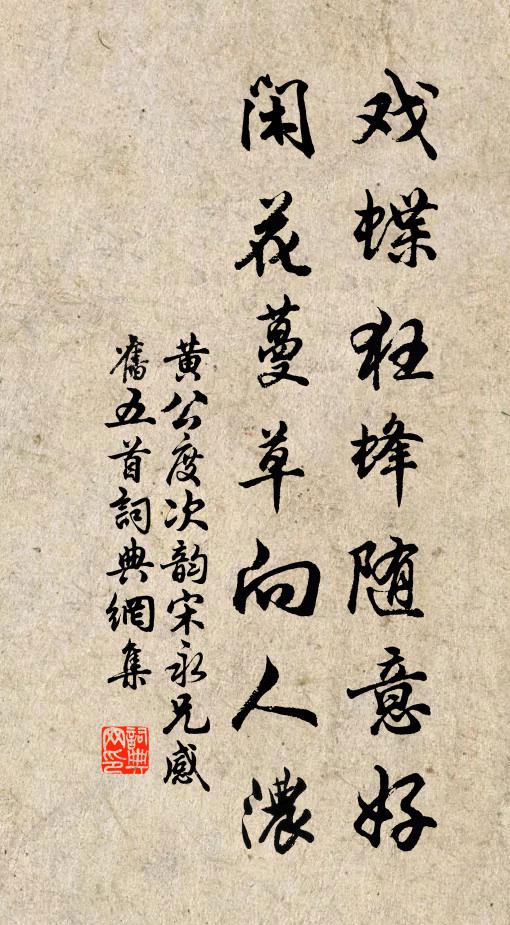 戏蝶狂蜂随意好
闲花蔓草向人濃
黄公度次韵宋永兄感
舊五首詞典網集
詞典
网印